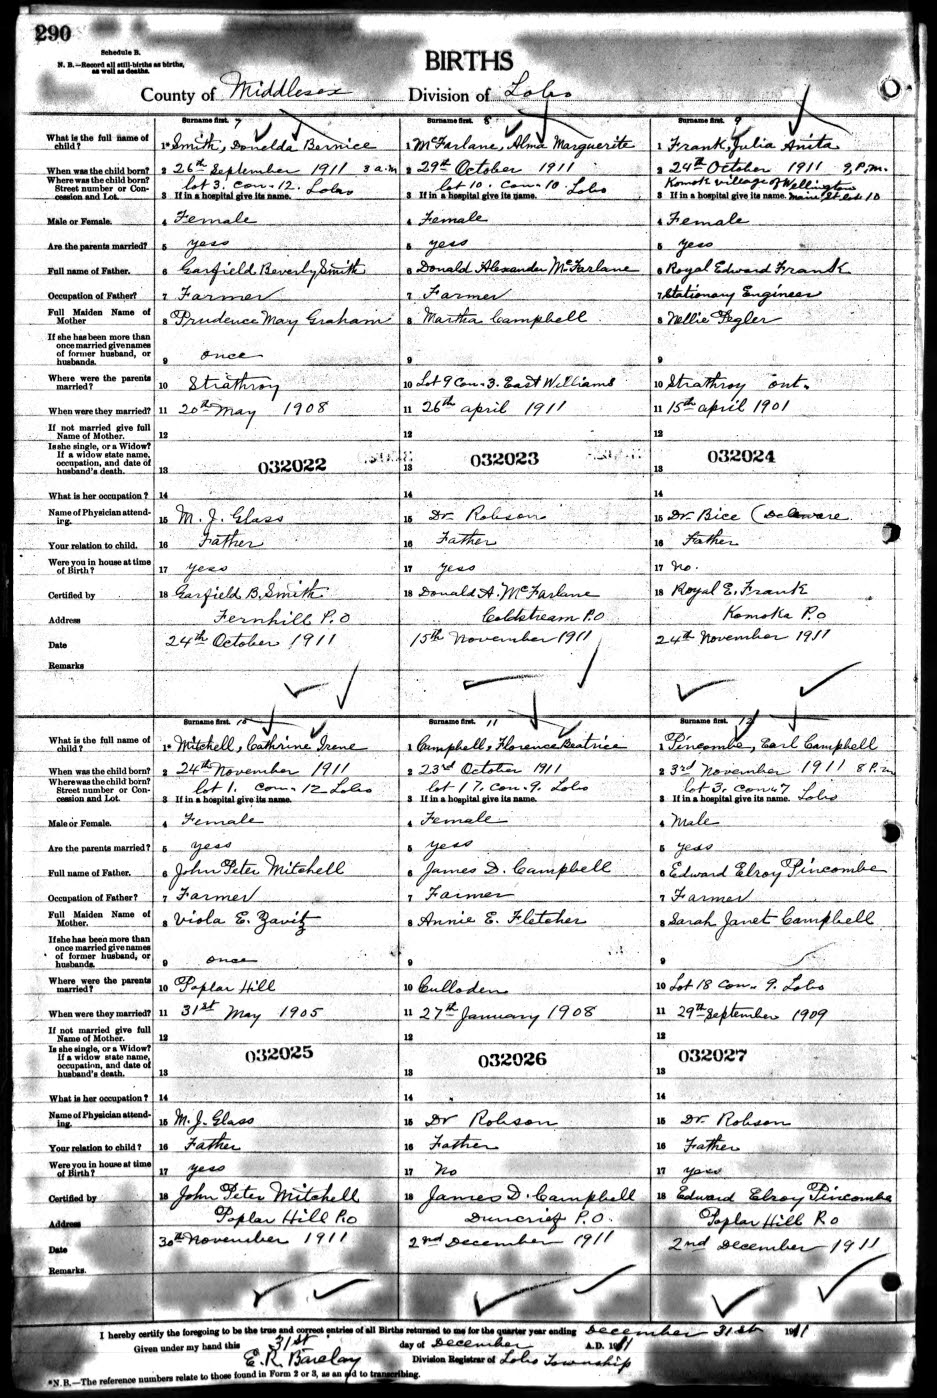 290
Schedule B.
N. B.—Record all still-births as births,
as well as deaths.
BIRTHS
County of Middlesex Division of Lobo
Surname first. 7 Surname first. 8 Surname first. 9
What is the full name of child? 1* Smith, Donelda Bernice 1 McFarlane, Alma Marguerite 1 Frank, Julia Anita
When was the child born? 2 26th September 1911 3 a.m 2 29th October 1911 2 24th October 1911 9 P.m.
Where was the child born? lot 3. con. 12. Lobo lot 10. con. 10 Lobo Komok village of Wellington
Street number or Concession and Lot. 3 If in a hospital give its name. 3 If in a hospital give its name. 3 If in a hospital give its name. main St. lot 10
Male or Female. 4 Female 4 Female 4 Female
Are the parents married? 5 yess 5 yess 5 yess
Full name of Father. 6 Garfield Beverly Smith 6 Donald Alexander McFarlane 6 Royal Edward Frank
Occupation of Father? 7 Farmer 7 Farmer 7 Stationary Engineer
Full Maiden Name of Mother 8 Prudence May Graham 8 Martha Campbell 8 Nellie Pegler
If she has been more than once married give names of former husband, or husbands. 9 once 9 9
Where were the parents married? 10 Strathroy 10 Lot 9 con. 3. East Williams 10 Strathroy ont.
When were they married? 11 20th May 1908 11 26th april 1911 11 15th april 1901
If not married give full Name of Mother. 12 12 12
Is she single, or a Widow? If a widow state name, occupation, and date of husband's death. 13 032022 13 032023 13 032024
What is her occupation? 14 14 14
Name of Physician attending. 15 M. J. Glass 15 Dr. Robson 15 Dr. Bice (Delaware
Your relation to child. 16 Father 16 Father 16 Father
Were you in house at time of Birth? 17 yess 17 yess 17 no.
Certified by 18 Garfield B. Smith 18 Donald A. McFarlane 18 Royal E. Frank
Address Fernhill P.O Coldstream P.O Komoka P.o
Date 24th October 1911 15th November 1911 24th November 1911
Remarks
Surname first. 10 Surname first. 11 Surname first. 12
What is the full name of child? 1* Mitchell, Cathrine Irene 1 Campbell, Florence Beatrice 1 Pincombe, Earl Campbell
When was the child born? 2 24th November 1911 2 23rd October 1911 2 3rd November 1911 8 P.m
Where was the child born? lot 1. con. 12 Lobo lot 17. con. 9. Lobo lot 3. con. 7
Street number or Concession and Lot. 3 If in a hospital give its name. 3 If in a hospital give its name. 3 If in a hospital give its name. Lobo
Male or Female. 4 Female 4 Female 4 Male
Are the parents married? 5 yess 5 yess 5 yess
Full name of Father. 6 John Peter Mitchell 6 James D. Campbell 6 Edward Elroy Pincombe
Occupation of Father? 7 Farmer 7 Farmer 7 Farmer
Full Maiden Name of Mother. 8 Viola E. Zavitz 8 Annie E. Fletcher 8 Sarah Janet Campbell
If she has been more than once married give names of former husband, or husbands. 9 once 9 9
Where were the parents married? 10 Poplar Hill 10 Culloden 10 Lot 18 con. 9. Lobo
When were they married? 11 31st May 1905 11 27th January 1908 11 29th September 1909
If not married give full Name of Mother. 12 12 12
Is she single, or a Widow? If a widow state name, occupation, and date of husband's death. 13 032025 13 032026 13 032027
What is her occupation? 14 14 14
Name of Physician attending. 15 M. J. Glass 15 Dr Robson 15 Dr. Robson
Your relation to child? 16 Father 16 Father 16 Father
Were you in house at time of Birth? 17 yess 17 No 17 yess
Certified by 18 John Peter Mitchell 18 James D. Campbell 18 Edward Elroy Pincombe
Address Poplar Hill P.o Duncrief P.O. Poplar Hill P.o
Date 30th November 1911 2nd December 1911 2nd December 1911
Remarks.
I hereby certify the foregoing to be the true and correct entries of all Births returned to me for the quarter year ending December 31st 1911
Given under my hand this 31st day of December A.D. 1911
E. R. Barclay Division Registrar of Lobo Township
*N.B.—The reference numbers relate to those found in Form 2 or 3, as an aid to transcribing.